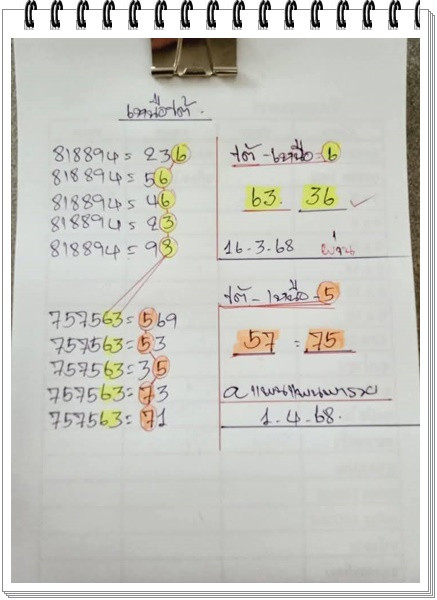 เหนือใต้.
818894 = 236
818894 = 56
818894 = 46
818894 = 23
818894 = 93
ใต้ - เหนือ = 6
63. 36 ✓
16-3-68 ผ่าน
757563 = 569
757563 = 53
757563 = 35
757563 = 73
757563 = 71
ใต้ - เหนือ = 5
57 = 75
1.4.68.